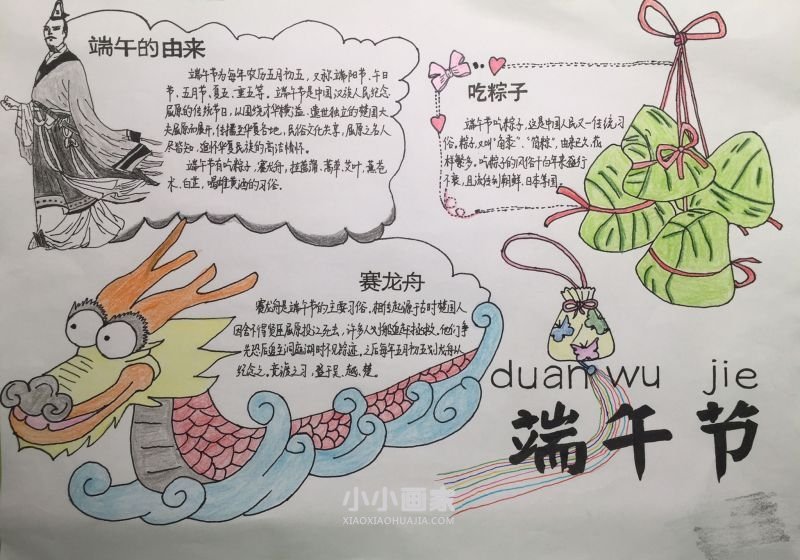 端午的由来
端午节为每年农历五月初五，又称端阳节、午日
节、五月节、夏五、重五等。端午节是中国汉族人民纪念
屈原的传统节日，以围绕才华横溢、遗世独立的楚国大
夫屈原而展开，传播至华夏各地，民俗文化共享，屈原之名人
尽皆知，追怀华夏民族的高洁情怀。
端午节有吃粽子，赛龙舟，挂菖蒲、蒿草、艾叶，薰苍
术、白芷，喝雄黄酒的习俗。
吃粽子
端午节吃粽子，这是中国人民又一传统习
俗。粽子，又叫“角黍”、“筒粽”，由来已久，花
样繁多。吃粽子的风俗千百年来盛行
不衰，且流传到朝鲜、日本等国。
赛龙舟
赛龙舟是端午节的主要习俗。相传起源于古时楚国人
因舍不得贤臣屈原投江死去，许多人划船追赶拯救。他们争
先恐后追至洞庭湖时不见踪迹。之后每年五月初五划龙舟以
纪念之。竞渡之习，盛于吴、越、楚。
duan wu jie
端午节
小小画家
XIAOXIAOHUAJIA.COM